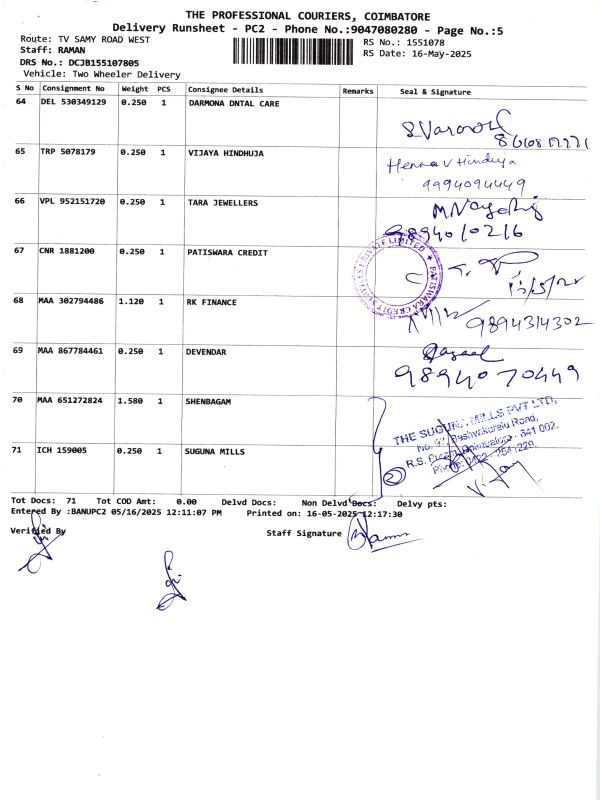 THE PROFESSIONAL COURIERS, COIMBATORE
Delivery Runsheet - PC2 - Phone No.:9047080280 - Page No.:5
Route: TV SAMY ROAD WEST
RS No.: 1551078
Staff: RAMAN
RS Date: 16-May-2025
DRS No.: DCJB155107805
Vehicle: Two Wheeler Delivery
S No Consignment No Weight PCS Consignee Details Remarks Seal & Signature
64 DEL 530349129 0.250 1 DARMONA DNTAL CARE
65 TRP 5078179 0.250 1 VIJAYA HINDHUJA
Henna V Hinduja
9994094449
66 VPL 952151720 0.250 1 TARA JEWELLERS
9894010216
67 CNR 1881200 0.250 1 PATISWARA CREDIT
PATISWARA CREDIT SERVICES PRIVATE LIMITED
68 MAA 302794486 1.120 1 RK FINANCE
9894314302
69 MAA 867784461 0.250 1 DEVENDAR
9894070449
70 MAA 651272824 1.580 1 SHENBAGAM
THE SUGUNA MILLS PVT LTD,
71 ICH 159005 0.250 1 SUGUNA MILLS
2
Tot Docs: 71 Tot COD Amt: 0.00 Delvd Docs: Non Delvd Docs: Delvy pts:
Entered By :BANUPC2 05/16/2025 12:11:07 PM Printed on: 16-05-2025 12:17:30
Verified By Staff Signature